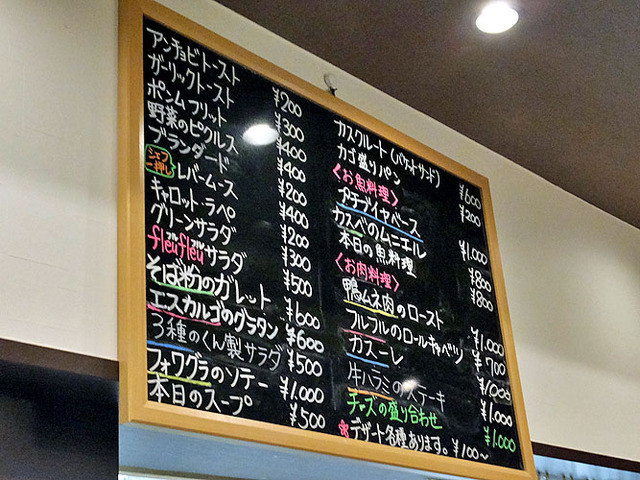 アンチョビトースト ¥200
ガーリックトースト ¥300
ポンムフリット ¥400
野菜のピクルス ¥400
ブランダード ¥200
シェフ一押し レバームース ¥400
キャロットラペ ¥200
グリーンサラダ ¥300
fleufleuフルフルサラダ ¥500
そば粉のガレット ¥600
エスカルゴのグラタン ¥600
3種のくん製サラダ ¥500
フォワグラのソテー ¥1.000
本日のスープ ¥500
カスクルート(バケットサンド) ¥600
カゴ盛りパン ¥200
<お魚料理>
プチブイヤベース ¥1.000
カスベのムニエル ¥800
本日の魚料理 ¥800
<お肉料理>
鴨ムネ肉のロースト ¥1.000
フルフルのロールキャベツ ¥700
カスーレ ¥1.000
牛ハラミのステーキ ¥1.000
チーズの盛り合わせ ¥1.000
デザート各種あります。 ¥100~